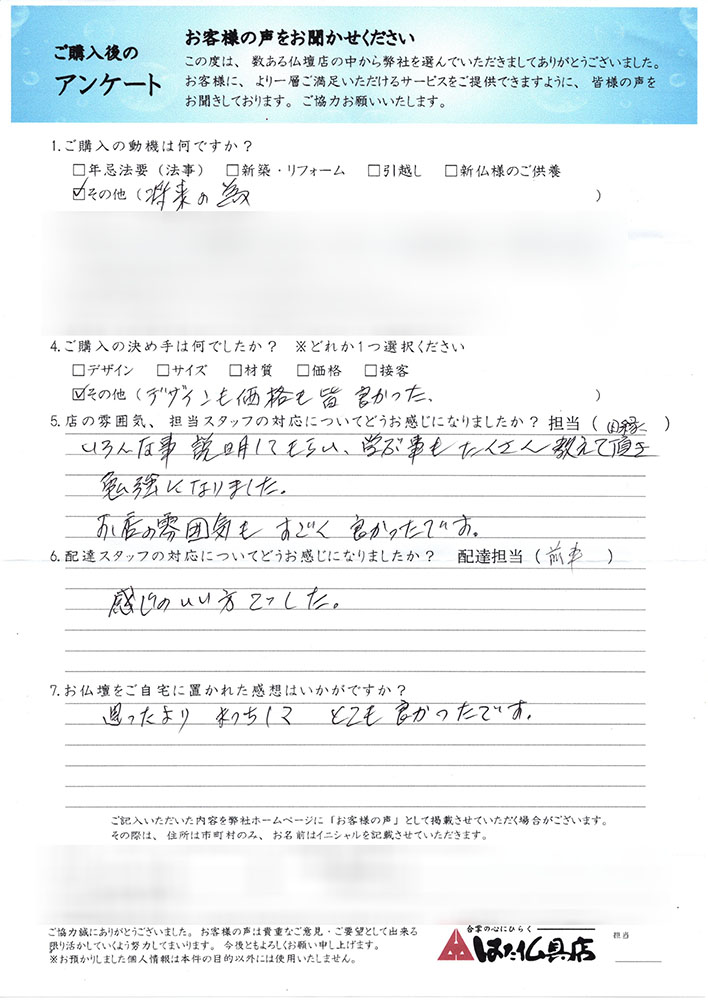 ご購入後の
アンケート
お客様の声をお聞かせください
この度は、数ある仏壇店の中から弊社を選んでいただきましてありがとうございました。
お客様に、より一層ご満足いただけるサービスをご提供できますように、皆様の声を
お聞きしております。ご協力お願いいたします。
1.ご購入の動機は何ですか？
□年忌法要（法事） □新築・リフォーム □引越し □新仏様のご供養
☑その他（将来の為）
4.ご購入の決め手は何でしたか？ ※どれか1つ選択ください
□デザイン □サイズ □材質 □価格 □接客
☑その他（デザインも価格も皆良かった、）
5.店の雰囲気、担当スタッフの対応についてどうお感じになりましたか？担当（ ）
いろんな事説明してもらい、学ぶ事もたくさん教えて頂き
勉強になりました。
お店の雰囲気もすごく良かったです。
6.配達スタッフの対応についてどうお感じになりましたか？ 配達担当（ ）
感じのいい方でした。
7.お仏壇をご自宅に置かれた感想はいかがですか？
思ったより まっちして とても良かったです。
ご記入いただいた内容を弊社ホームページに「お客様の声」として掲載させていただく場合がございます。
その際は、住所は市町村のみ、お名前はイニシャルを記載させていただきます。
ご協力誠にありがとうございました。お客様の声は貴重なご意見・ご要望として出来る
限り活かしていくよう努力してまいります。今後ともよろしくお願い申し上げます。
※お預かりしました個人情報は本件の目的以外には使用いたしません。
合掌の心にひらく
はた仏具店
担当